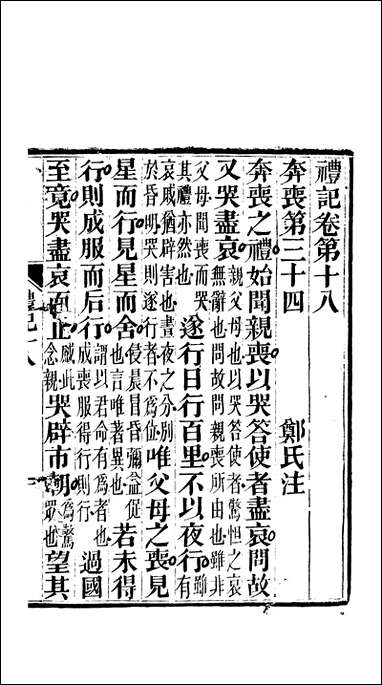 禮記卷第十八
奔喪第三十四 鄭氏注
奔喪之禮始聞親喪以哭答使者盡哀問故
又哭盡哀親父母也以哭答使者驚怛之哀無辭也問故問親喪所由也雖非
父母聞喪而哭其禮亦然也遂行日行百里不以夜行雖有
哀戚猶辟害也晝夜之分別於昏明哭則遂行者不爲位唯父母之喪見
星而行見星而舍侵晨冒昏彌益促也言唯著異也若未得
行則成服而后行謂以君命有爲者也成喪服得行則行過國
至竟哭盡哀而止感此念親哭辟市朝爲驚衆也望其
禮記十八